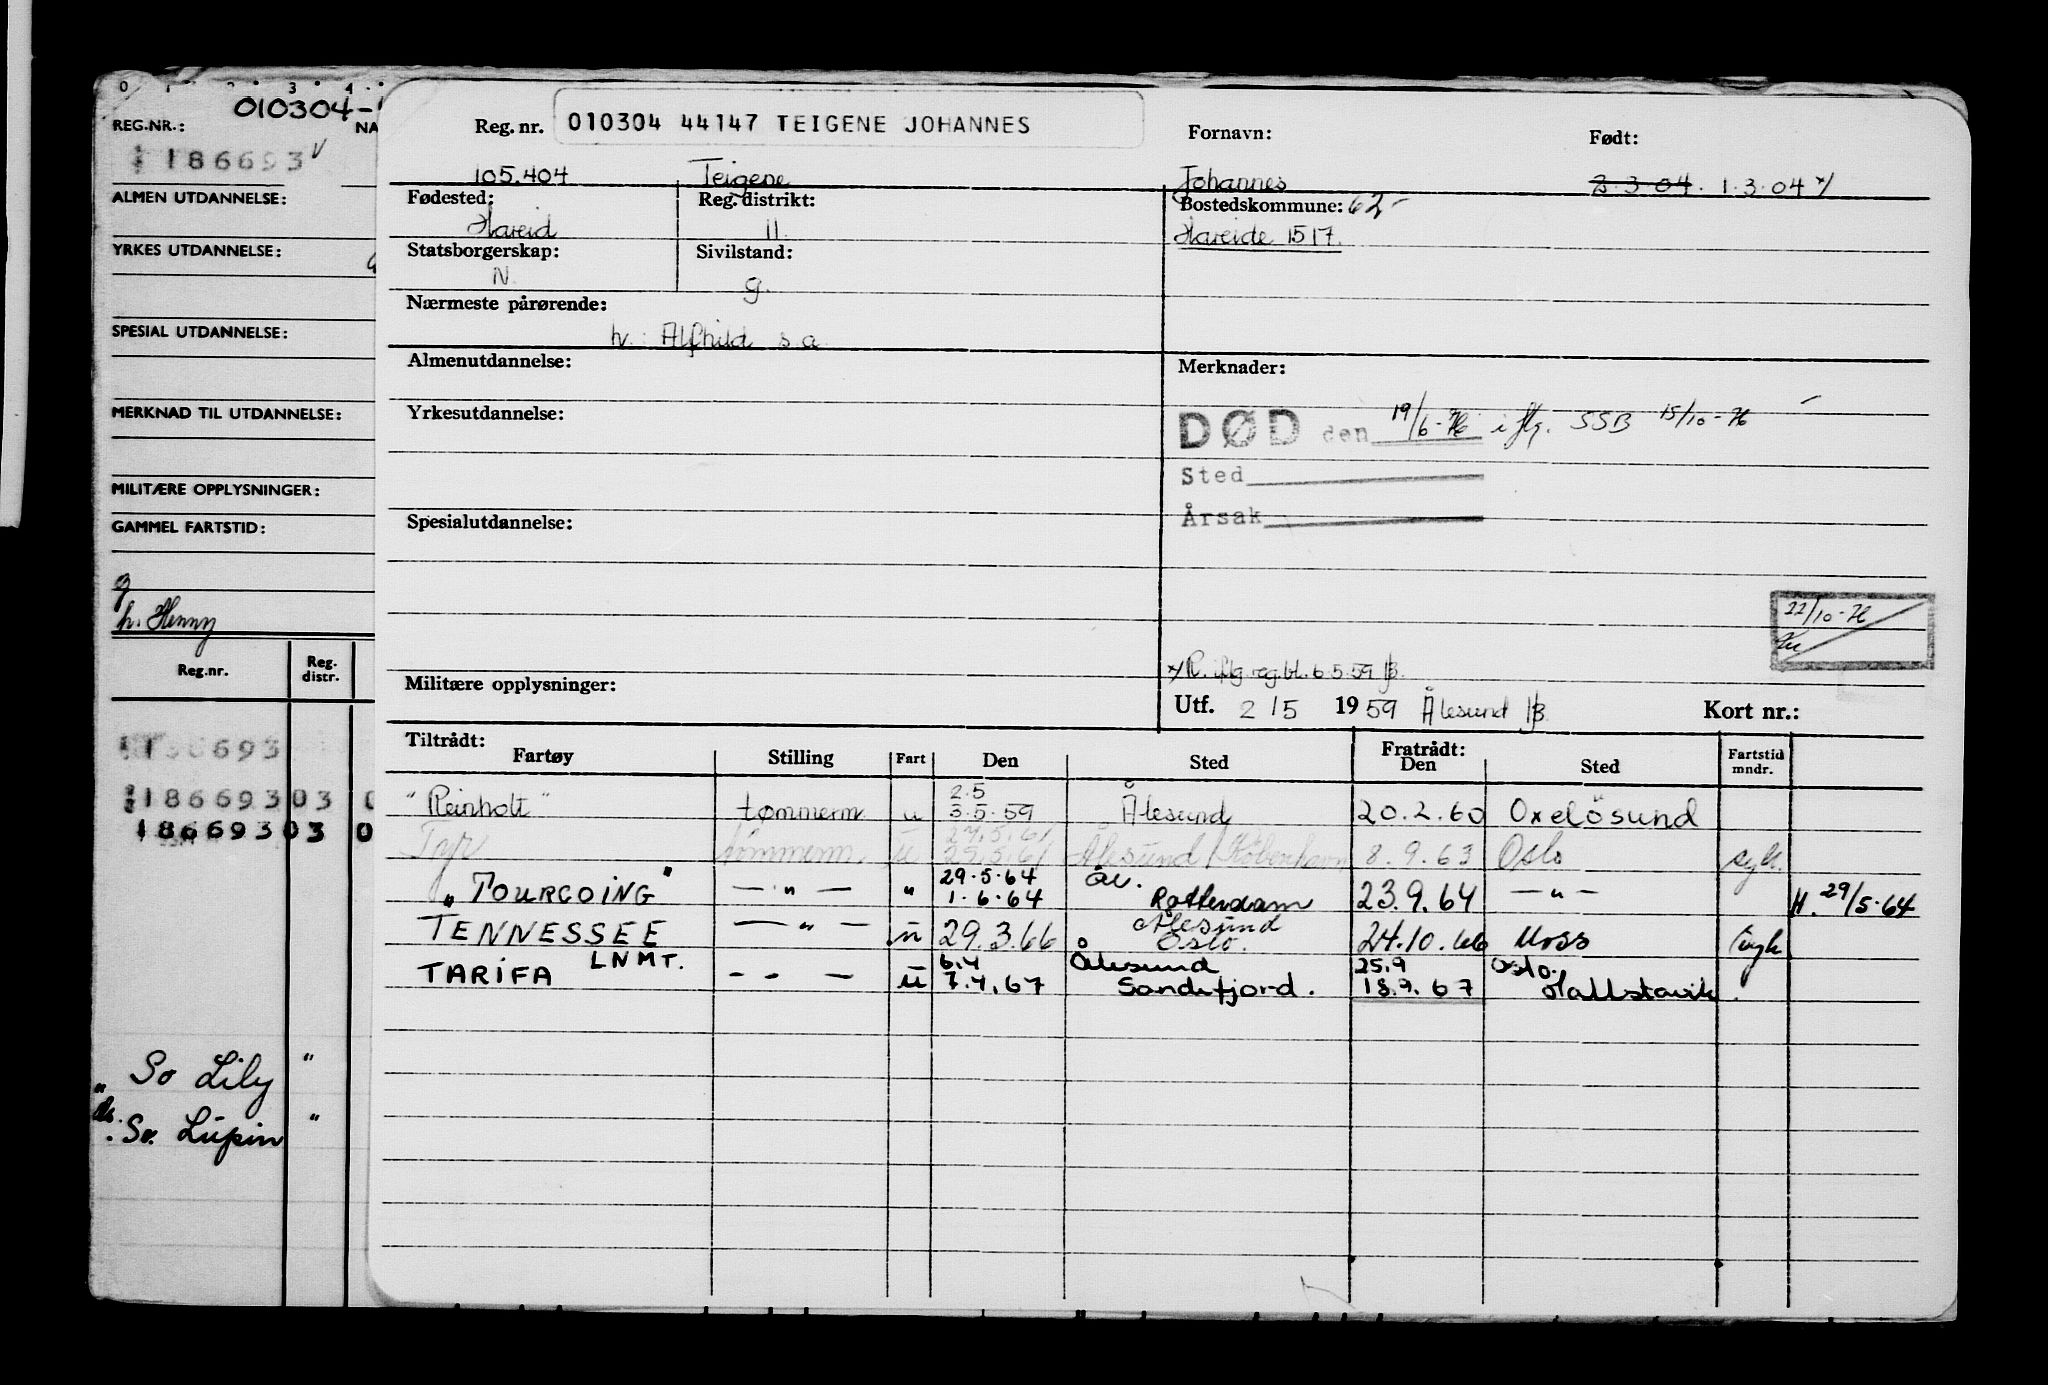 0 1 2 3 4
010304-
REG.NR.: NA
186693 v
ALMEN UTDANNELSE:
YRKES UTDANNELSE:
SPESIAL UTDANNELSE:
MERKNAD TIL UTDANNELSE:
MILITÆRE OPPLYSNINGER:
GAMMEL FARTSTID:
g
h. Henny
Reg.nr. Reg. distr.
186693
186693 03 0
186693 03 0
" So Lily "
So. Lupin "
Reg. nr. 010304 44147 TEIGENE JOHANNES Fornavn: Født:
105.404 Teigene Johannes 2.3.04. 1.3.04 x/
Fødested: Reg. distrikt: Bostedskommune: 62-
Hareid 11. Hareide 1517.
Statsborgerskap: Sivilstand:
N. g.
Nærmeste pårørende:
h. Alfhild s.a
Almenutdannelse: Merknader:
Yrkesutdannelse:
DØD den 19/6-76 iflg. SSB 15/10-76
Sted
Årsak
Spesialutdannelse:
22/10-76
x/R. iflg reg.bl. 6.5.59 B.
Militære opplysninger: Utf. 2/5 1959 Ålesund B Kort nr.:
Tiltrådt: Fratrådt:
Fartøy Stilling Fart Den Sted Den Sted Fartstid mndr.
2.5
"Reinholt" tømmerm u 3.5.59 Ålesund 20.2.60 Oxelösund
27.5.61
Tyr tømmerm u 29.5.61 Ålesund/København 8.9.63 Oslo syk.
29.5.64 Ål.
"TOURCOING" — " — " 1.6.64 Rotterdam 23.9.64 — " — H. 29/5-64
Ålesund
TENNESSEE — " — u 29.3.66 Oslo. 24.10.66 Moss syk
LNMT. 6.4 Ålesund 25.9 Oslo.
TARIFA - - — u 7.4.67 Sandefjord. 18.9.67 Hallstavik.